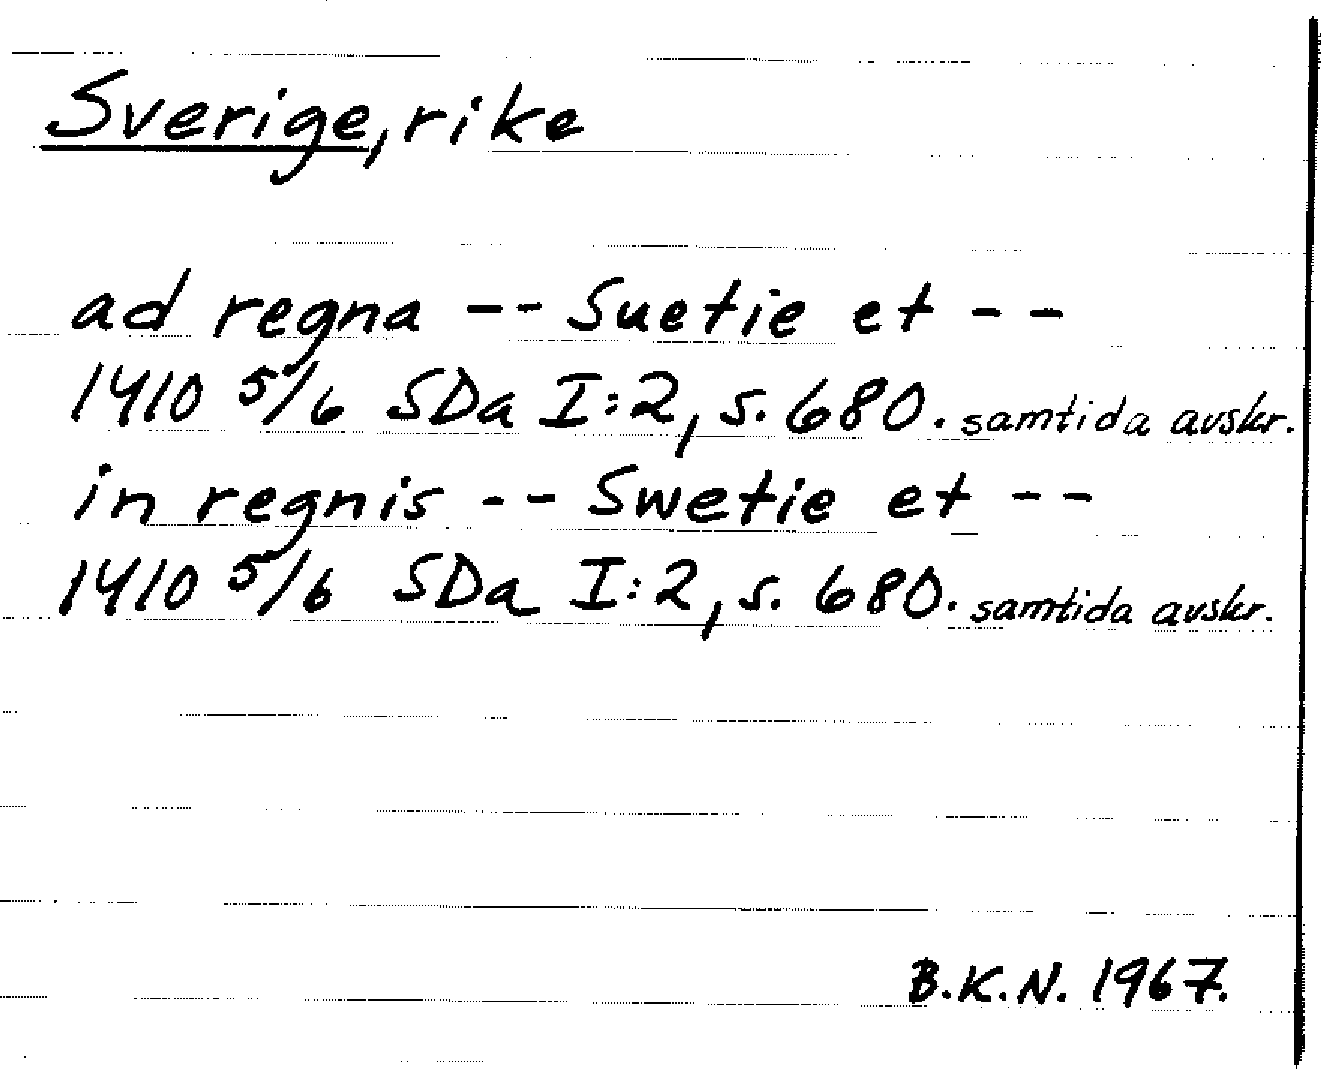 Sverige, rike
ad regna -- Suetie et --
1410 5/6 SDa I:2, s. 680. samtida avskr.
in regnis -- Swetie et --
1410 5/6 SDa I:2, s. 680. samtida avskr.
B.K.N. 1967.